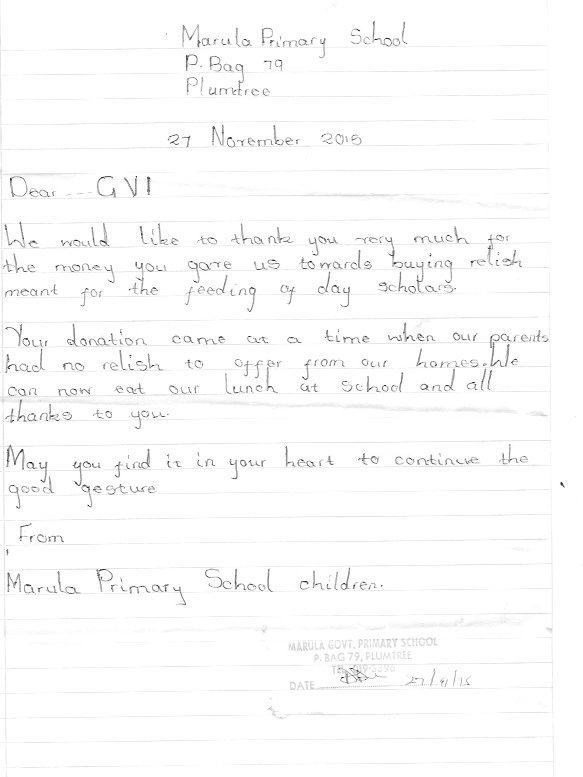 Marula Primary School
P. Bag 79
Plumtree
27 November 2015
Dear ... GVI
We would like to thank you very much for
the money you gave us towards buying relish
meant for the feeding of day scholars.
Your donation came at a time when our parents
had no relish to offer from our homes. We
can now eat our lunch at school and all
thanks to you.
May you find it in your heart to continue the
good gesture
From
Marula Primary School children.
MARULA GOVT. PRIMARY SCHOOL
P. BAG 79, PLUMTREE
DATE 27/11/15